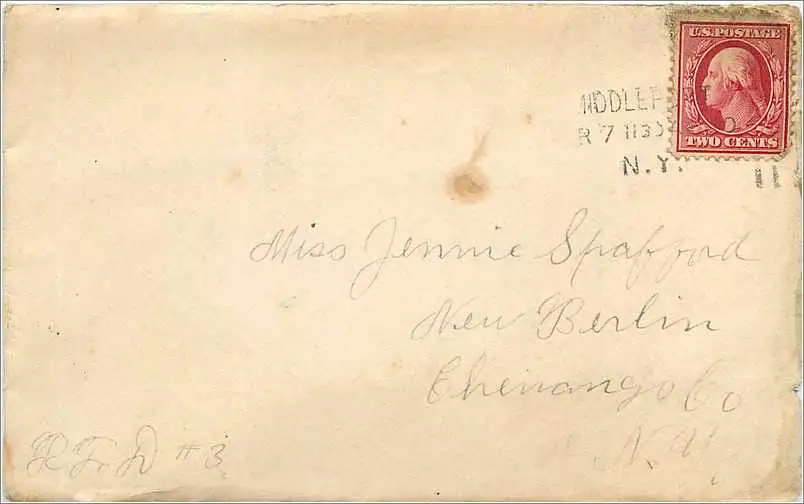 U.S. POSTAGE
TWO CENTS
7 1130
N.Y.
Miss Jennie Spafford
New Berlin
Chenango Co
N.Y.
R.F.D #3